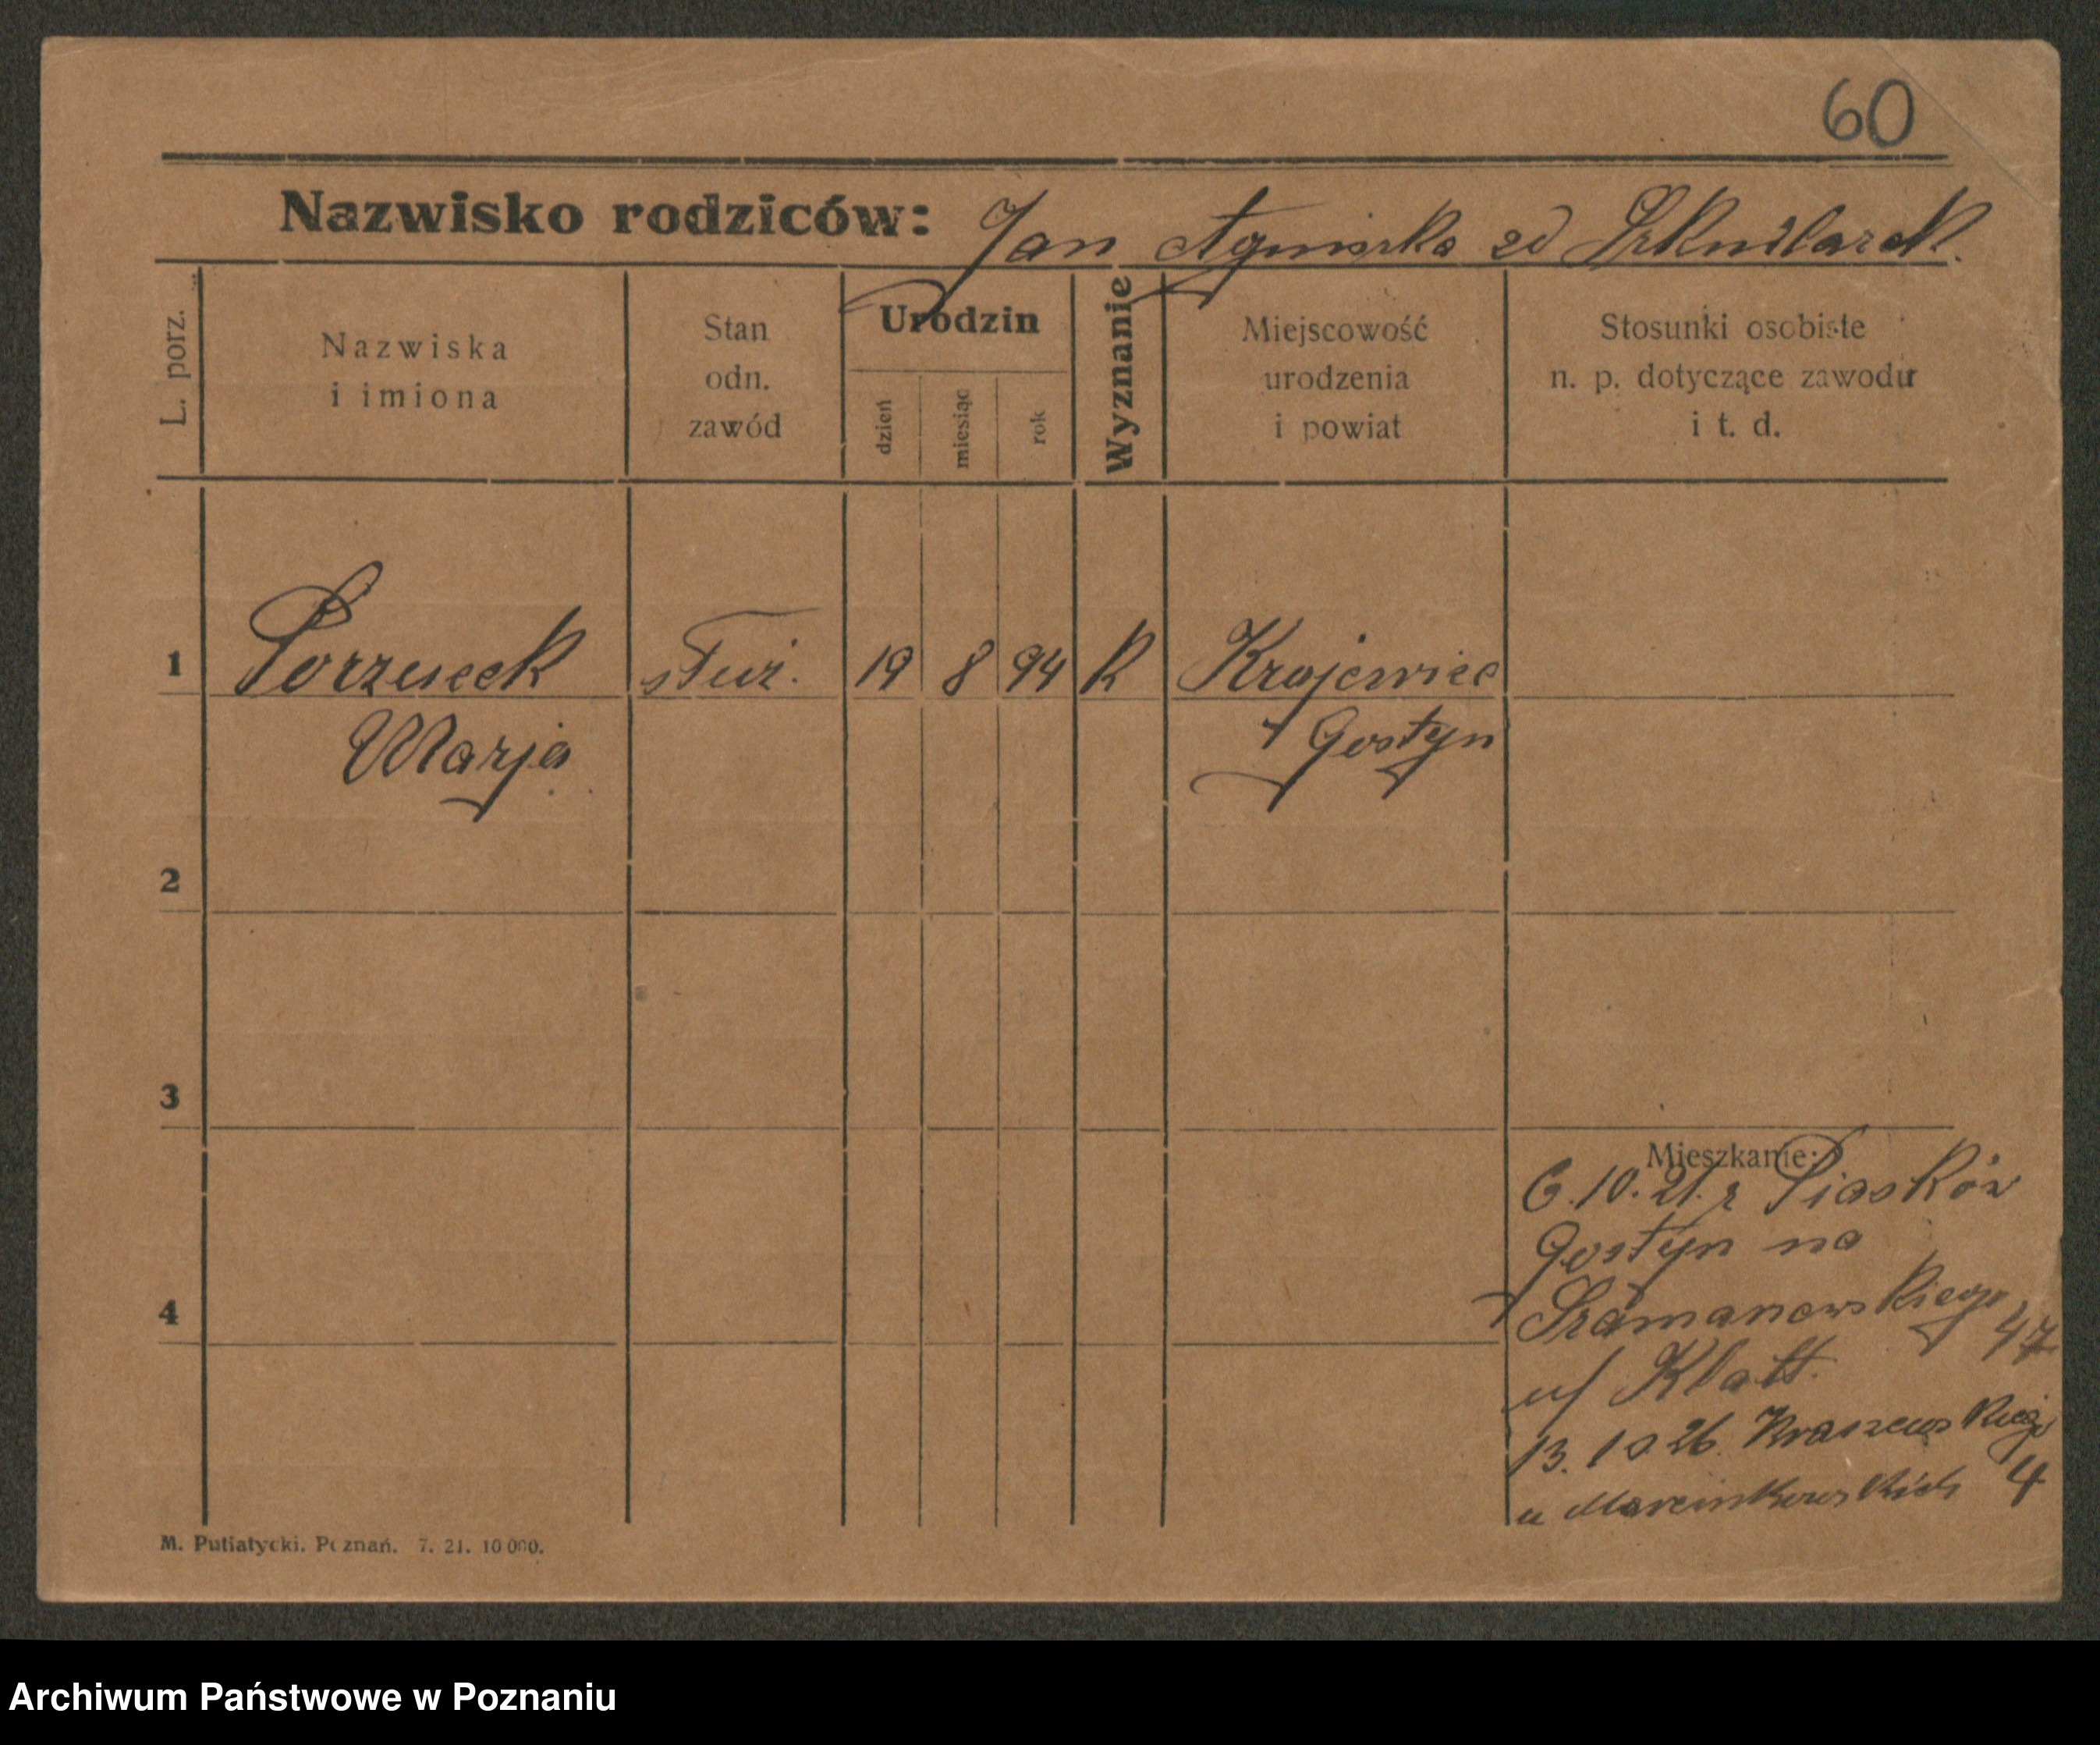 60
Nazwisko rodziców: Jan Agnieszka zd Szkudlarek.
L. porz.
Nazwiska
i imiona
Stan
odn.
zawód
Urodzin
dzień
miesiąc
rok
Wyznanie
Miejscowość
urodzenia
i powiat
Stosunki osobiste
n. p. dotyczące zawodu
i t. d.
1 Porzucek służ. 19 8 94 R Krajewice
Marja Gostyn
2
3
4
Mieszkanie:
6.10.21. z Piasków
Gostyn na
Szamarzewskiego 47
u/ Klatt.
13. 10 26. Kraszewskiego 4
u Marcinkowskich
M. Putiatycki. Poznań. 7. 21. 10 000.
Archiwum Państwowe w Poznaniu